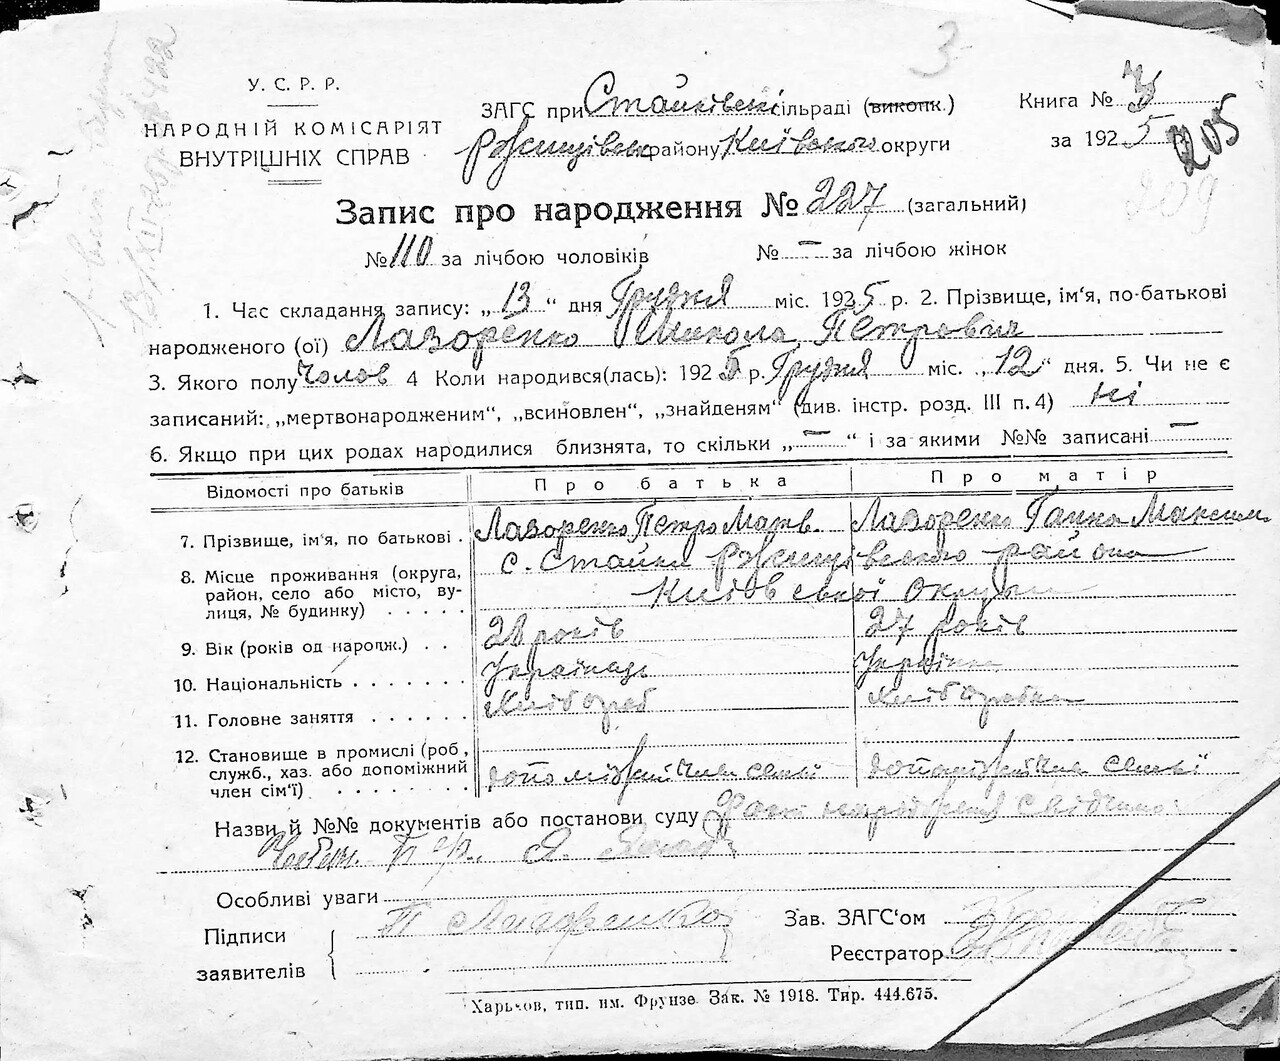 3
У. С. Р. Р.
НАРОДНІЙ КОМІСАРІЯТ
ВНУТРІШНІХ СПРАВ
ЗАГС при Стайківській сільраді (викопк.)
Ржищівськ району Київської округи
Книга № 3
за 1925
205
209
Запис про народження № 227 (загальний)
№ 110 за лічбою чоловіків № — за лічбою жінок
1. Час складання запису: „ 13 “ дня Грудня міс. 1925 р. 2. Прізвище, ім'я, по-батькові
народженого (ої) Лазоренко Микола Петрович
3. Якого полу Чолов 4 Коли народився(лась): 1925 р. Грудня міс. „ 12 “ дня. 5. Чи не є
записаний: „мертвонародженим“, „всиновлен“, „знайденям“ (див. інстр. розд. III п. 4) ні
6. Якщо при цих родах народилися близнята, то скільки „ — “ і за якими №№ записані —
Відомості про батьків Про батька Про матір
7. Прізвище, ім'я, по батькові . Лазоренко Петро Матв. Лазоренко Ганна Максим.
8. Місце проживання (округа, с. Стайки Ржищівського района
район, село або місто, ву- Київської округи
лиця, № будинку) . . . . .
9. Вік (років од народж.) . . 28 років 27 років
10. Національність . . . . . . . Українець Українка
11. Головне заняття . . . . . . Хлібороб Хліборобка
12. Становище в промислі (роб,
служб., хаз. або допоміжний допоміжний член семьї допоміжний член семьї
член сім'ї) . . . . . . . . .
Назви й №№ документів або постанови суду
Особливі уваги
Підписи
заявителів
П Лазоренко
Зав. ЗАГС'ом
Реєстратор
Харьков, тип. им. Фрунзе. Зак. № 1918. Тир. 444.675.